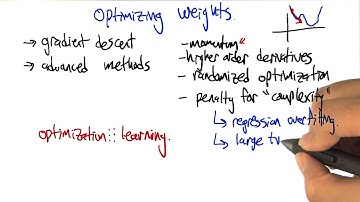 Optimizing Weights.
→ gradient descent
→ advanced methods
- momentum
- higher order derivatives
- randomized optimization
- penalty for "complexity"
↳ regression overfitting.
↳ large tr
optimization :: learning.